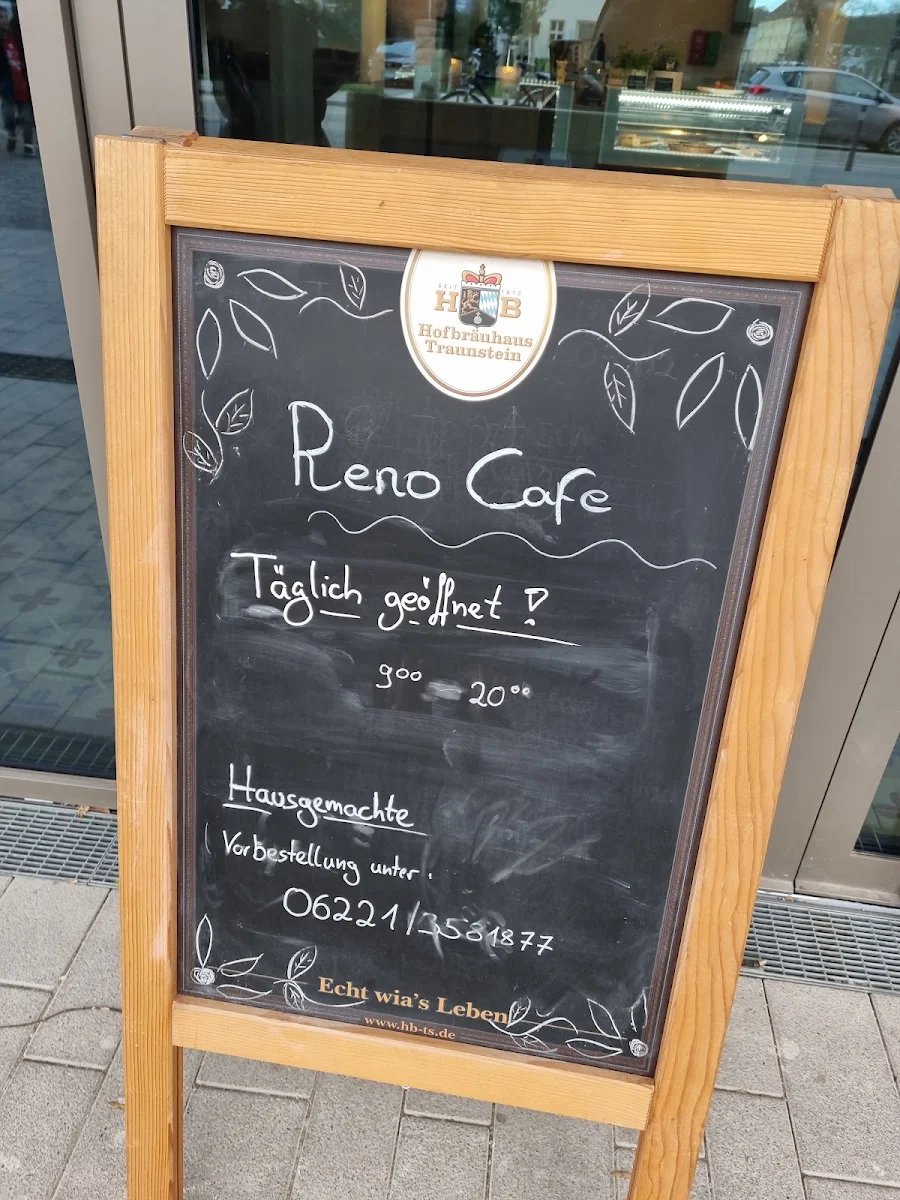 SEIT 1612
H B
Hofbräuhaus
Traunstein
Reno Cafe
Täglich geöffnet !
9⁰⁰ — 20⁰⁰
Hausgemachte
Vorbestellung unter.
06221/3581877
Echt wia's Leben
www.hb-ts.de